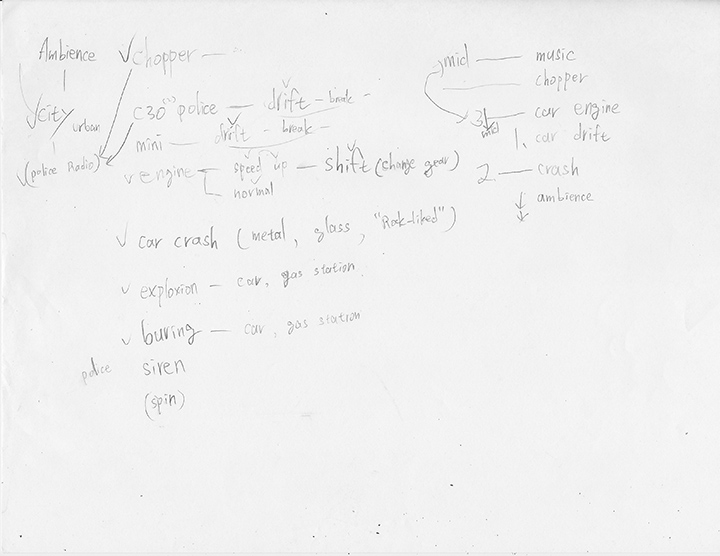 Ambience
chopper
city
urban
(police Radio)
C30 police — drift - break -
mini — drift - break -
engine — speed up — shift (change gear)
normal
car crash (metal, glass, "Rock-liked")
exploxion — car, gas station
buring — car, gas station
police siren
(spin)
mid — music
chopper
3 — car engine
mid
1. car drift
2 — crash
ambience